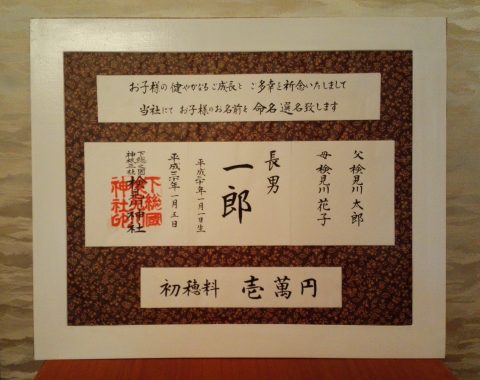 お子様の健やかなるご成長とご多幸を祈念いたしまして
当社にてお子様のお名前を命名選名致します
父 検見川 太郎
母 検見川 花子
長男
一郎
平成二十年一月一日生
平成二十年一月五日
下総之国
神祇三社
検見川神社
下総國
検見川
神社印
初穂料 壱萬円